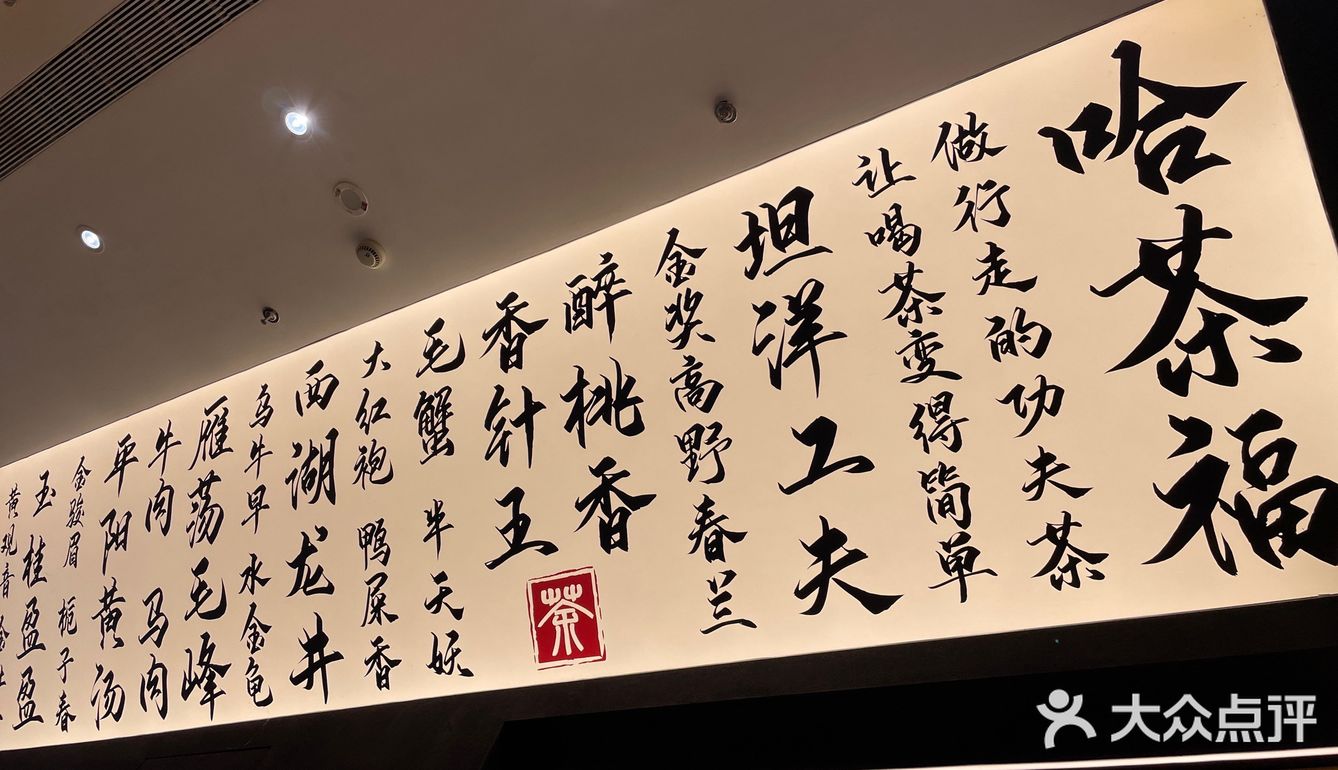 哈茶福
做行走的功夫茶
让喝茶变得简单
坦洋工夫
金奖高野春兰
醉桃香
茶
香针王
毛蟹 半天妖
大红袍 鸭屎香
西湖龙井
乌牛早 水金龟
雁荡毛峰
牛肉 马肉
平阳黄汤
金骏眉 栀子春
玉桂盈盈
黄观音
大众点评